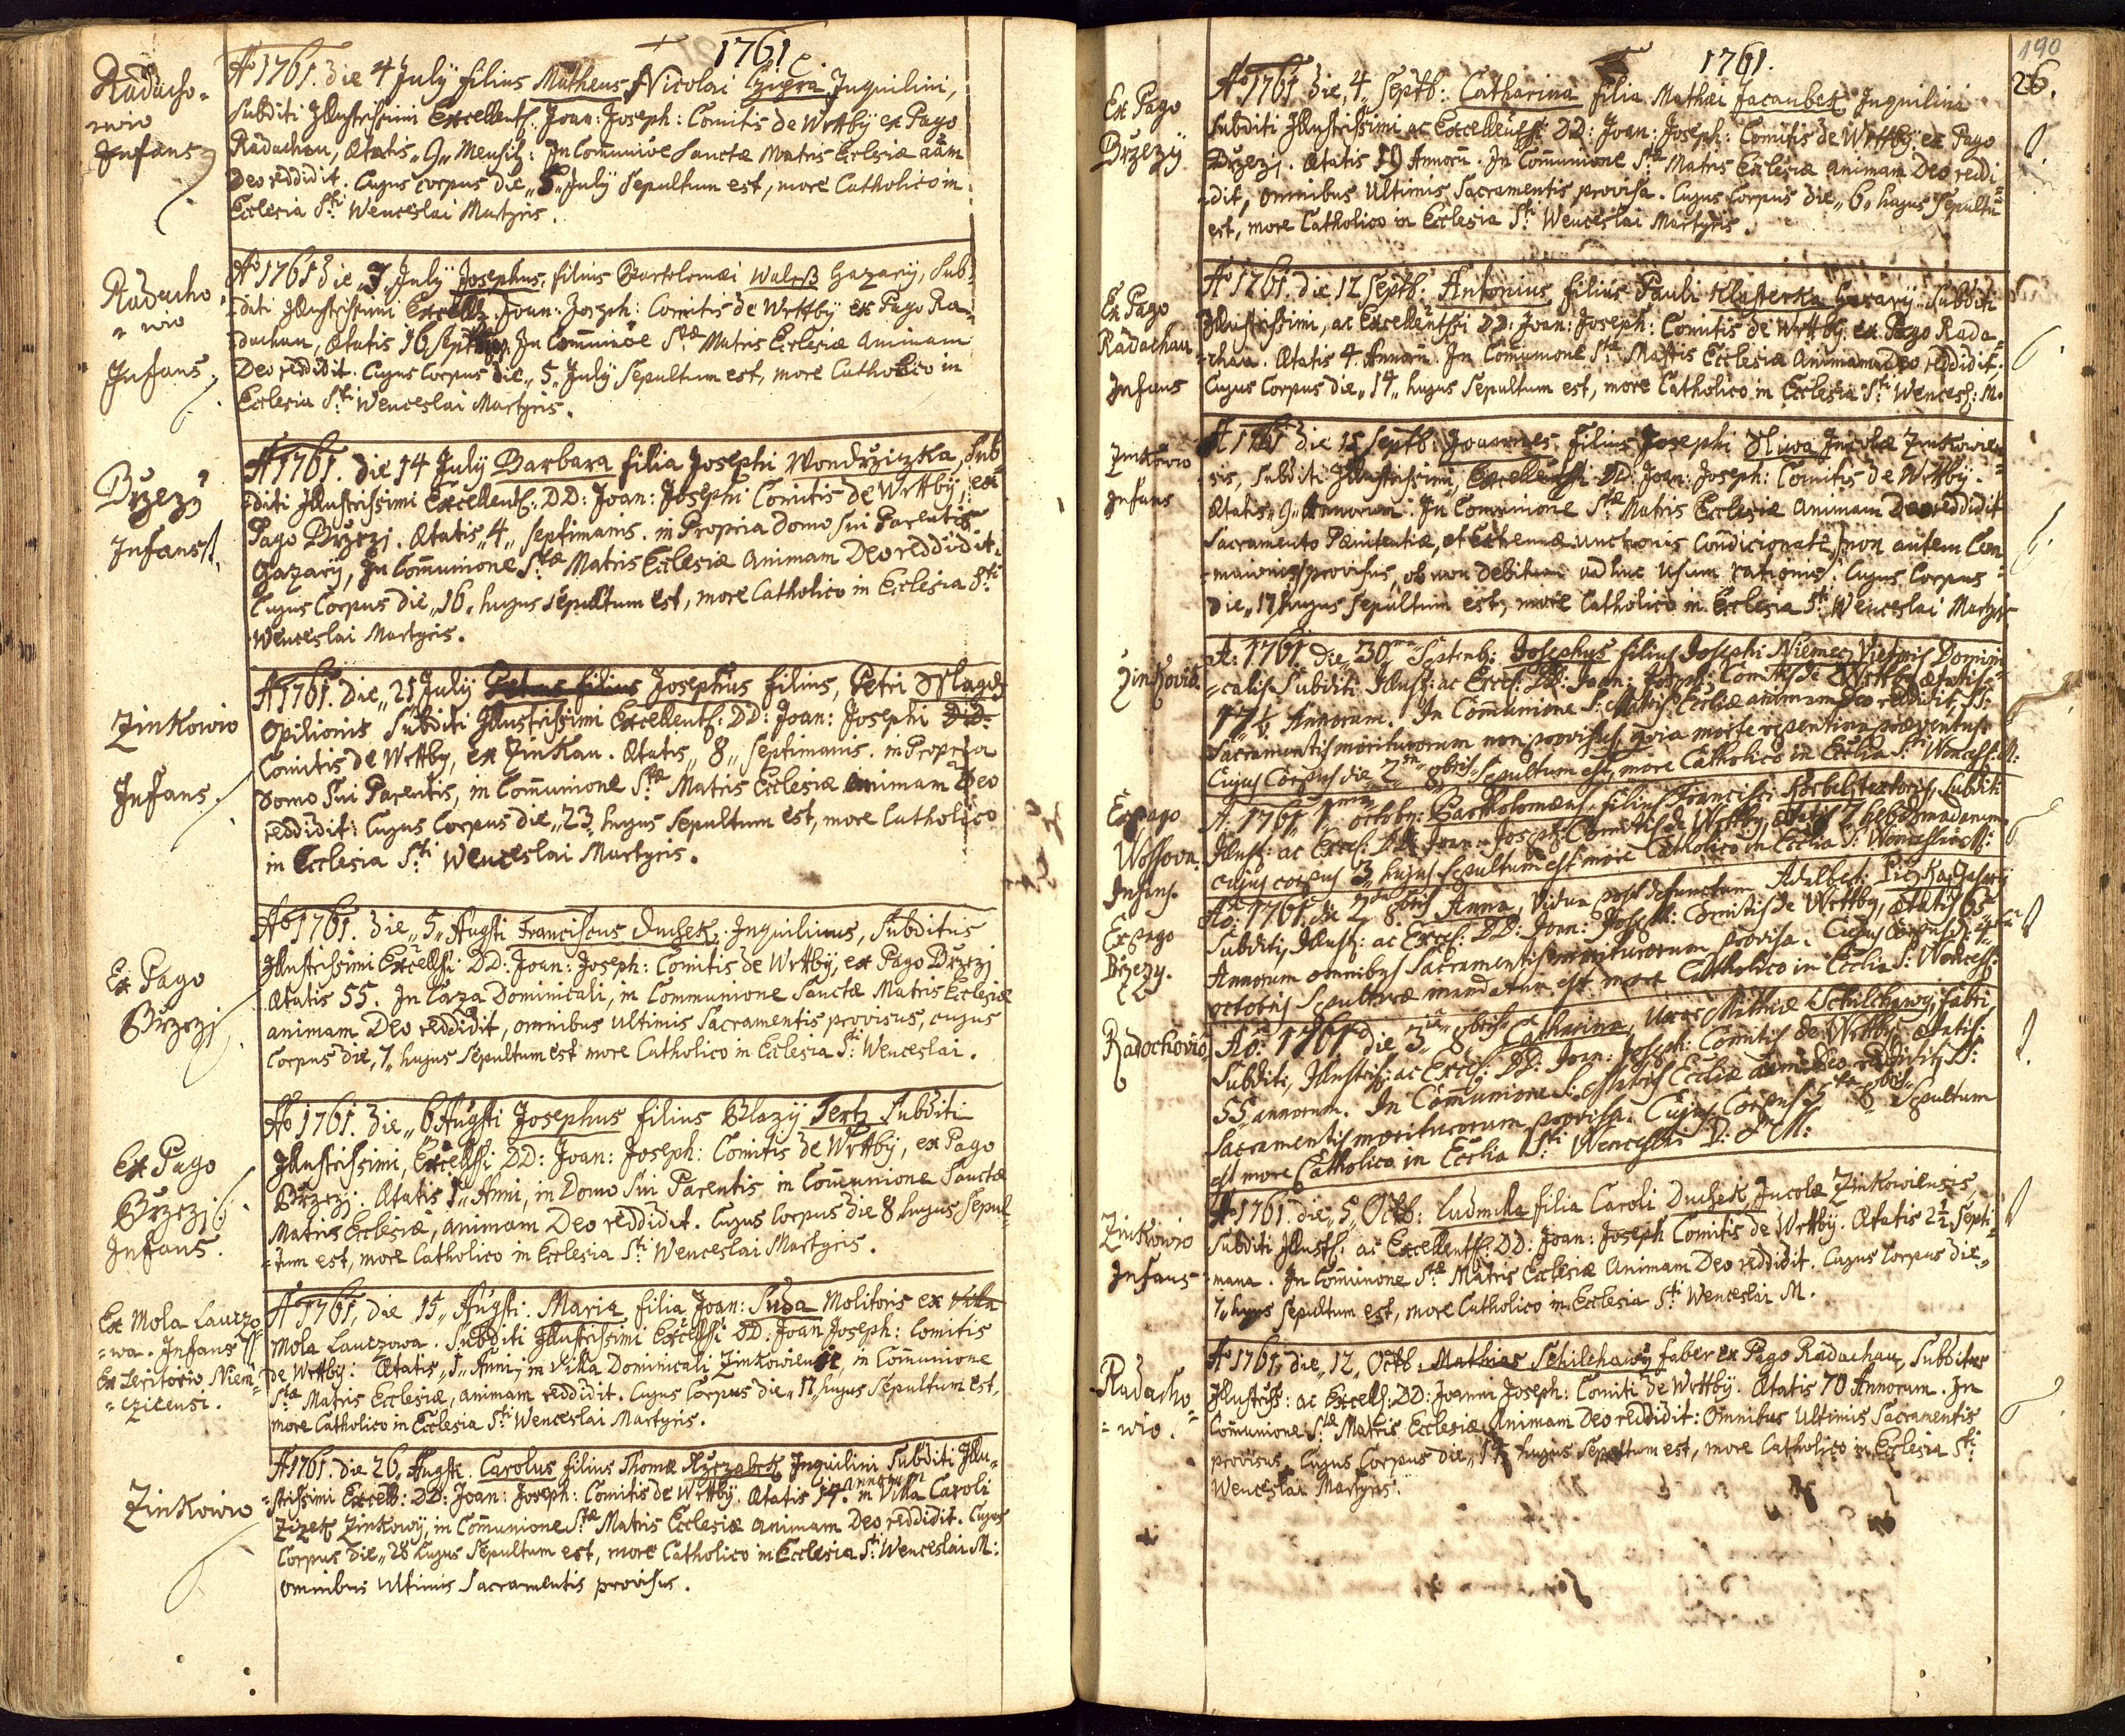 1761.
Radacho-
wio
Infans
Ao 1761. die 4 July filius Matheus Nicolai Czigra Inquilini,
Subditi Illustrissimi Excellentss: Joan: Joseph: Comitis de Wrttby ex Pago
Radachau, Ætatis „9„ Mensis: In Com̃unioe Sanctæ Matris Ecclesiæ aãm
Deo reddidit. Cujus corpus die „5„ July Sepultum est, more Catholico in
Ecclesia S:ti Wenceslai Martyris.
Radacho
= wio
Infans
Ao 1761 die „3„ July Josephus, filius Bartolomæi Waleß Gazarij, Sub-
-diti Illustrissimi Excellss. Joan: Joseph: Comitis de Wrttby ex Pago Ra-
-dachau, Ætatis 16 In Com̃unioe S:tæ Matris Ecclesiæ Animam
Deo reddidit. Cujus Corpus die „5„ July Sepultum est, more Catholico in
Ecclesia S:ti Wenceslai Martyris.
Brzezy
Infans
A 1761. die 14 July Barbara filia Josephi Wondrziczka, Sub-
diti Illustrissimi Excellentss: DD: Joan: Josephi Comitis de Wrttby, ex
Pago Brzezj. Ætatis „4„ septimanis. in Propria domo sui Parentis
Gazarij, In Com̃unione S:tæ Matris Ecclesiæ Animam Deo reddidit.
Cujus Corpus die „16„ hujus sepultum est, more Catholico in Ecclesia S:ti
Wenceslai Martyris.
Zinkowio
Infans.
A 1761. Die „21 July Petrus filius Josephus filius, Petri
Opilionis Subditi Illustrissimi Excellentss: DD: Joan: Josephi D:D:
Comitis de Wrttby, ex Zinkau. Ætatis „8„ septimanis. in Propria
domo Sui Parentis, in Com̃unione S:tæ Matris Ecclesiæ animam Deo
reddidit: Cujus Corpus die „23„ hujus Sepultum est, more Catholico
in Ecclesia S:ti Wenceslai Martyris.
Ex Pago
Brzezj
Ao 1761. Die „5„ Augsti Franciscus Duchek, Inquilinus, Subditus
Illustrissimi Excellssi DD: Joan: Joseph: Comitis de Wrttby, ex Pago Brzezj
Ætatis 55. In Caza Dominicali, in Communione Sanctæ Matris Ecclesiæ
animam Deo reddidit, omnibus Ultimis Sacramentis provisus, cujus
Corpus die „7„ hujus Sepultum est more Catholico in Ecclesia S:ti Wenceslai.
Ex Pago
Brzezj
Infans.
Ao 1761. die „6 Augsti Josephus filius Blazij Tertz Subditi
Illustrissimi, Excellssi DD: Joan: Joseph: Comitis de Wrttby, ex Pago
Brzezj. Ætatis 1„ Anni, in Domo Sui Parentis in Com̃unione Sanctæ
Matris Ecclesiæ, animam Deo reddidit. Cujus Corpus die 8 hujus Sepul-
-tum est, more Catholico in Ecclesia S:ti Wenceslai Martyris.
Ex Mola Laurzo
=wa. Infans
Ex Teritorio Niem-
=czicensi.
A 1761, die 15„ Augsti: Maria filia Joan: Suda Molitoris ex Villa
Mola Laurzowa. Subditi Illustrissimi Excellssi DD: Joan Joseph: Comitis
de Wrttby: Ætatis „1„ Anni, in Villa Dominicali Zinkowiensi, in Com̃unione
S:tæ Matris Ecclesiæ, animam reddidit. Cujus Corpus die „17 hujus Sepultum est,
more Catholico in Ecclesia S:ti Wenceslai Martyris.
Zinkowio
A 1761. die 26„ Augsti. Carolus filius Thomæ Inquilini Subditi Illu-
-strissimi Excellss: DD: Joan: Joseph: Comitis de Wrttby. Ætatis 17. annorum in Villa Caroli
Zizek Zinkowij, in Com̃unione S:tæ Matris Ecclesiæ Animam Deo reddidit. Cujus
Corpus Die „28 hujus Sepultum est, more Catholico in Ecclesia S:ti Wenceslai M:
Omnibus Ultimis Sacramentis provisus.
1761.
190
26.
Ex Pago
Brzezij
Ao 1761 Die 4„ Septb: Catharina filia Mathæi Jacaubek Inquilini
Subditi Illustrissimi ac Excellentssi DD: Joan: Joseph: Comitis de Wrttby ex Pago
Brzezj. Ætatis 19 Annorũ. In Com̃unione S:tæ Matris Ecclesiæ Animam Deo reddi
=dit, omnibus Ultimis Sacramentis provisa. Cujus Corpus die „6„ hujus Sepultũ
est, more Catholico in Ecclesia S:ti Wenceslai Martyris.
Ex Pago
Radachau
Infans
Ao 1761. die 12 Septb: Antonius filius Pauli Klasterka Gazarij Subditi
Illustrissimi, ac Excellentssi DD: Joan: Joseph: Comitis de Wrttby ex Pago Rada-
-chau. Ætatis 4. Annorũ. In Com̃unione S:tæ Matris Ecclesiæ Animam Deo reddidit.
Cujus Corpus die „14„ hujus Sepultum est, more Catholico in Ecclesia S:ti Wencesl: M.
Zinkowio
Infans
A 1761 die 15 Septb: Joannes filius Josephi Incolæ Zinkowien
sis, Subditi Illustrissimi, Excellentssi DD: Joan: Joseph: Comitis de Wrttby.
Ætatis „9„ Annorum. In Com̃unione S:tæ Matris Ecclesiæ Animam Deo reddidit
Sacramento Pænitentiæ, et Extremæ unctionis Condicionate, non autem Com
-munionis provisus, ob non debitum adhuc Usum rationis. Cujus Corpus
Die „17 hujus Sepultum est, more Catholico in Ecclesia S:ti Wenceslai Martyr
Zinkovio.
A: 1761. die „30„ Septemb: Josephus filius Josephi Niemec Domini
=calis Subditi Illusts: ac Excels: DD: Joan: Joseph: Comitis de Wrttby ætatis
17 Annorum. In Com̃unione S: Matris Eccliæ animam Deo reddidit, SS:
Sacramentis moriturorum non provisus, quia morte repentina præventus
Cujus Corpus die 2„ 8bris Sepultum est, more Catholico in Ecclia S:ti Wencesl: M:
Ex pago
Wossova.
Infans.
A: 1761 1ma octob: Bartholomæus filius Francisci Korbel textoris, Subditi
Illusts: ac Excels: DD: Joan: Joseph: Comitis de Wrttby, ætatis 7 hebdomadarum
cujus corpus 3„ hujus sepultum est more Catholico in Ecclia S: Wenceslai M:
Ex pago
Brzezy.
Ao: 1761. die 2 8bris Anna, Vidua post defunctum Adalbert: Gazarij
Subditi, Illusts: ac Excels: DD: Joan: Joseph: Comitis de Wrttby, ætatis 65
Annorum omnibus Sacramentis moriturorum provisa. Cujus Corpus d: 4ta
octobris Sepulturæ mandatum est more Catholico in Ecclia S: Wencesl:
Radochovio
Ao: 1761 die 3„ 8bris Catharina, Uxor Mathiæ Schilchawy, fabri,
Subditi, Illustriss: ac Excels: DD: Joan: Joseph: Comitis de Wrttby ætatis:
55 annorum. In Com̃unione S: Matris Eccliæ animã Deo reddidit, SS:
Sacramentis moriturorum provisa. Cujus Corpus 5ta 8bris Sepultum
est more Catholico in Ecclia S:ti Wenceslai D: & M:
Zinkowio
Infans
Ao 1761 die „5„ Octb: Ludmilla filia Caroli Duchek, Incolæ Zinkowiensis
Subditi Illusts: ac Excellentss: DD: Joan: Joseph Comitis de Wrttby. Ætatis 2½ Septi-
-mana. In Com̃unione S:tæ Matris Ecclesiæ Animam Deo reddidit. Cujus Corpus die„
7„ hujus Sepultum est, more Catholico in Ecclesia S:ti Wenceslai M.
Radacho
= wio.
Ao 1761, die „12„ Octb. Mathias Schilchawy faber ex Pago Radachau, Subditus
Illustriss: ac Excells: DD: Joanni Joseph: Comiti de Wrttby. Ætatis 70 Annorum. In
Com̃unione S:tæ Matris Ecclesiæ Animam Deo reddidit: Omnibus Ultimis Sacramentis
provisus, Cujus Corpus die „14 hujus Sepultum est, more Catholico in Ecclesia S:ti
Wenceslai Martyris.